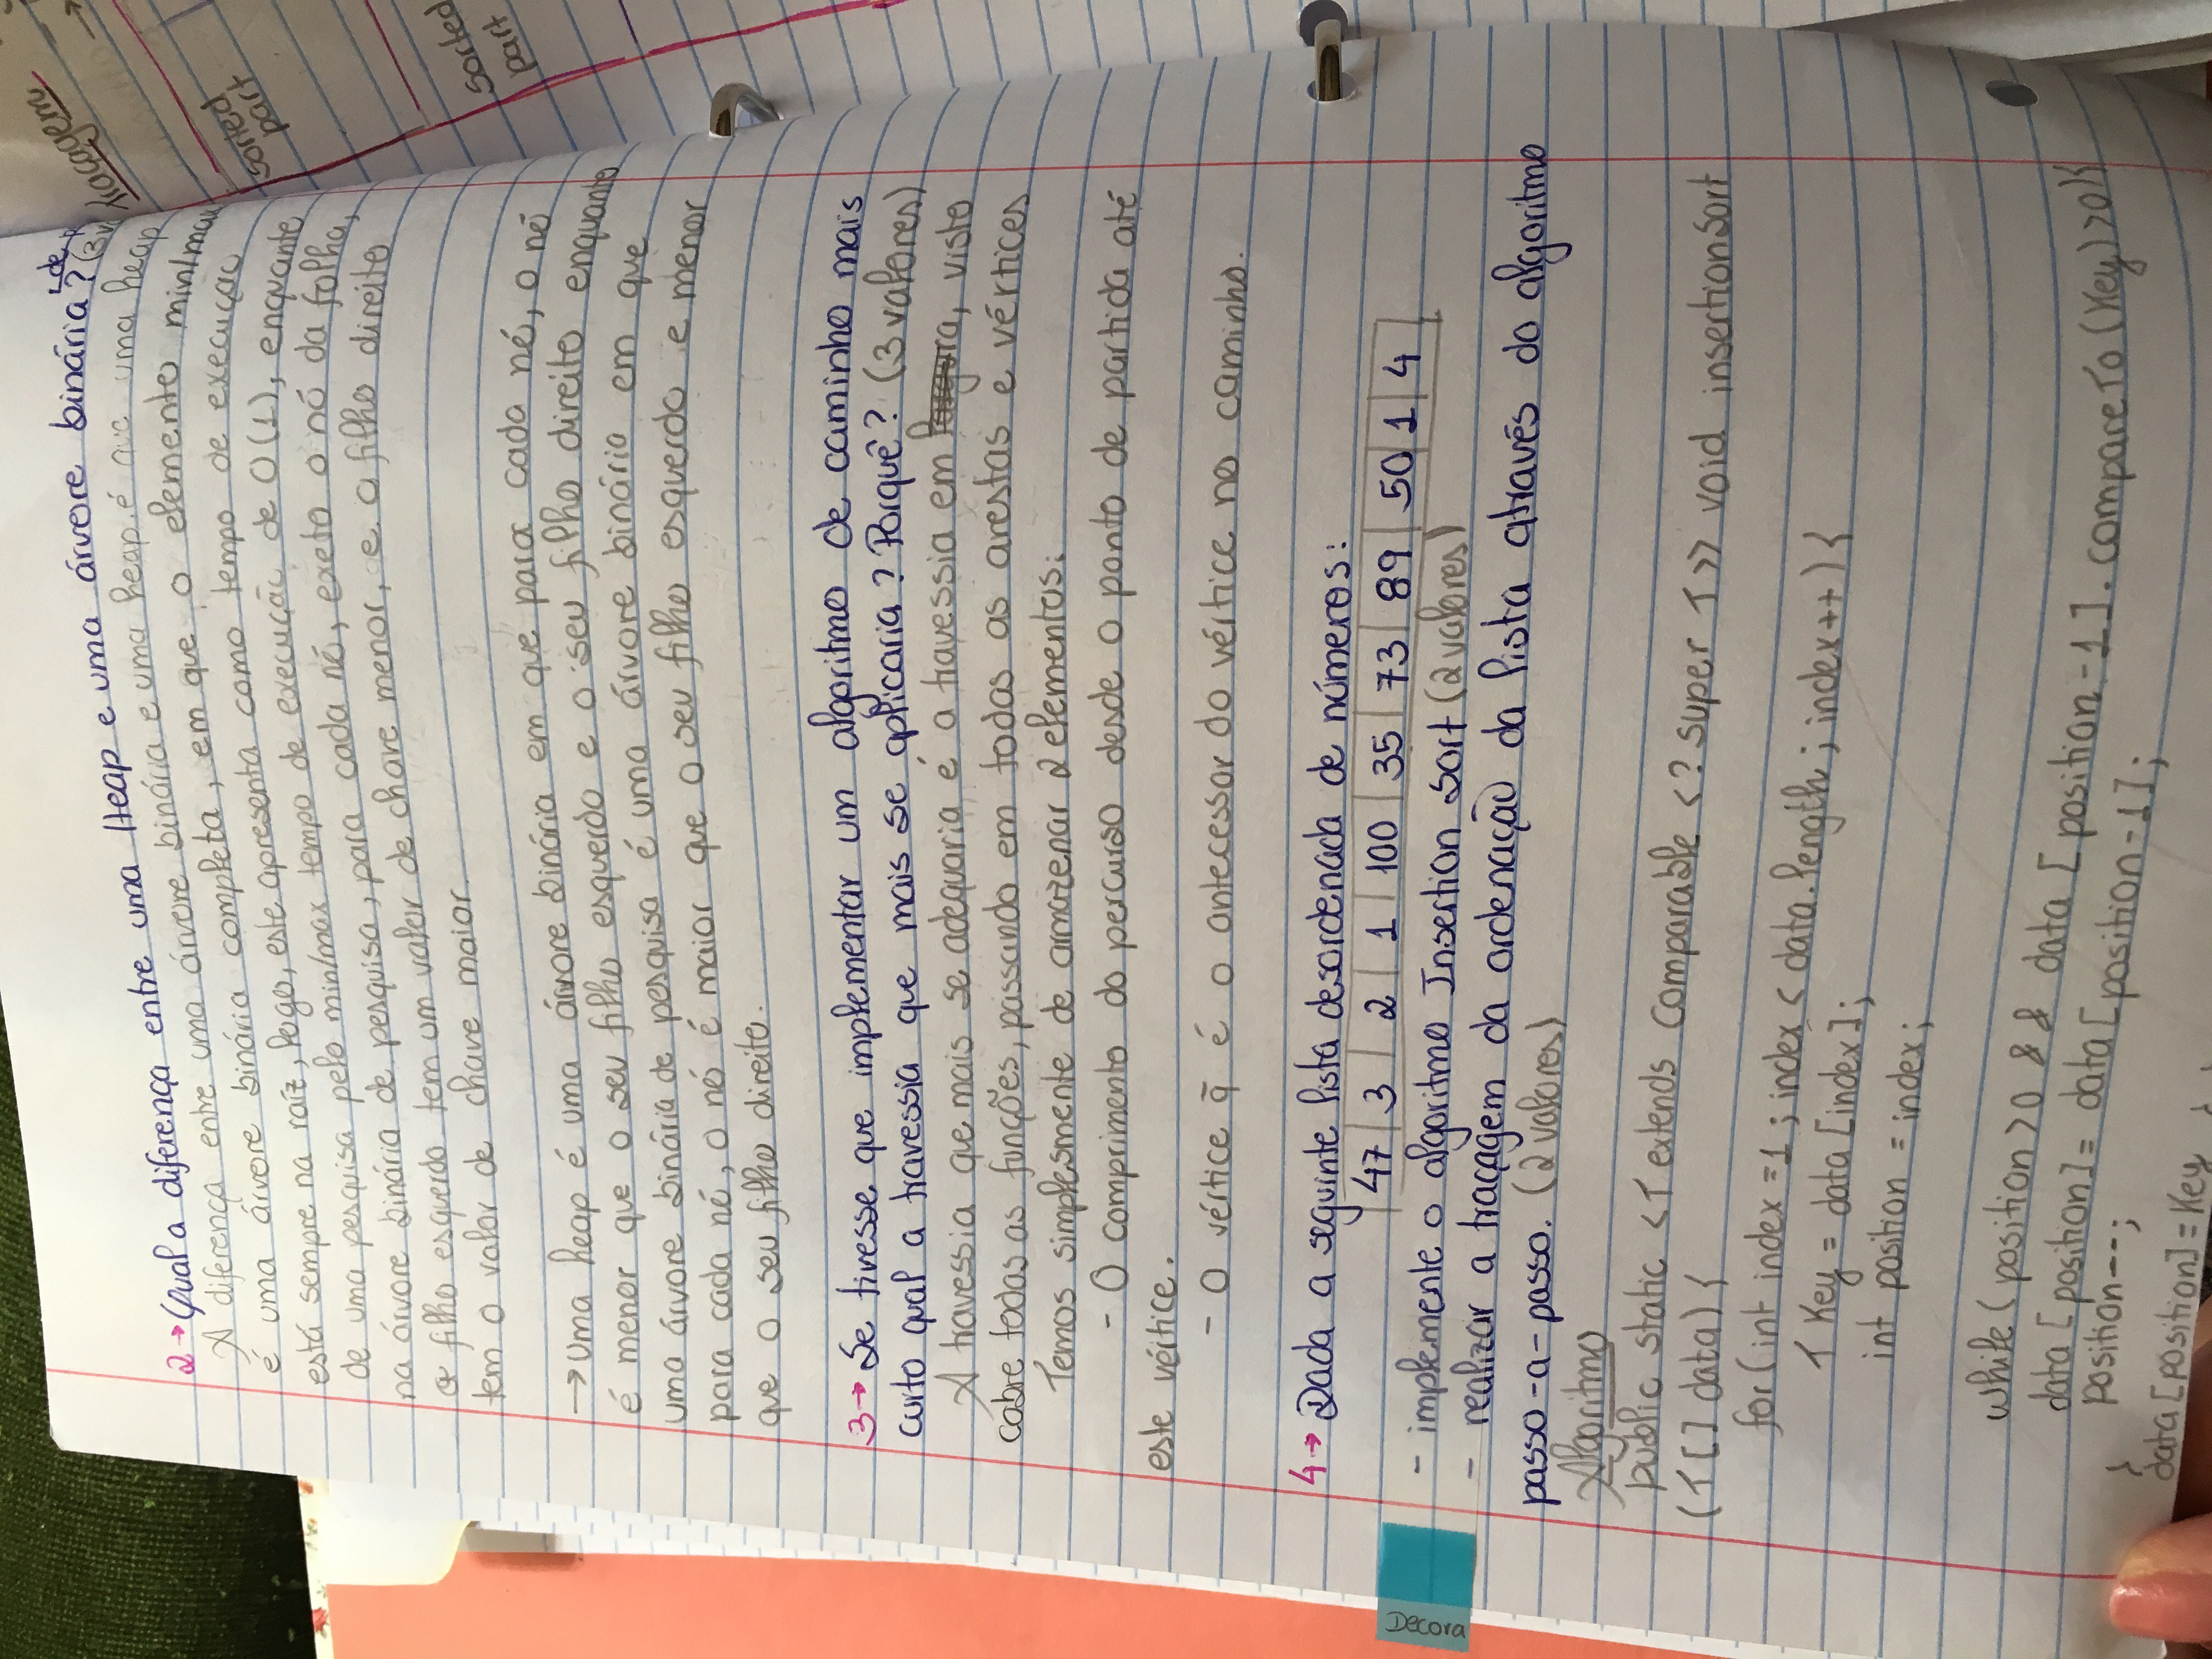 2→ Qual a diferença entre uma Heap e uma árvore binária? (3v
↳de p
A diferença entre uma árvore binária e uma heap é que uma heap
é uma árvore binária completa, em que o elemento min/max
está sempre na raíz, logo, este apresenta como tempo de execução
de uma pesquisa pelo min/max tempo de execução de O(1), enquanto
na árvore binária de pesquisa, para cada nó, exeto o nó da folha,
o filho esquerdo tem um valor de chave menor, e o filho direito
tem o valor de chave maior.
→ Uma heap é uma árvore binária em que para cada nó, o nó
é menor que o seu filho esquerdo e o seu filho direito enquanto
uma árvore binária de pesquisa é uma árvore binária em que
para cada nó, o nó é maior que o seu filho esquerdo e menor
que o seu filho direito.
3→ Se tivesse que implementar um algoritmo de caminho mais
curto qual a travessia que mais se aplicaria? Porquê? (3 valores)
A travessia que mais se adequaria é a travessia em largura, visto
cobre todas as funções, passando em todas as arestas e vértices
Temos simplesmente de armazenar 2 elementos:
- O comprimento do percurso desde o ponto de partida até
este vértice.
- O vértice q̄ é o antecessor do vértice no caminho.
4→ Dada a seguinte lista desordenada de números:
47 | 3 | 2 | 1 | 100 | 35 | 73 | 89 | 50 | 1 | 4
- implemente o algoritmo Insertion Sort (2 valores)
- realizar a traçagem da ordenação da lista através do algoritmo
passo-a-passo. (2 valores)
Algoritmo
public static <T extends Comparable <? super T>> void insertionSort
(T[] data) {
for (int index = 1; index < data.length; index++) {
T Key = data [index];
int position = index;
while (position > 0 && data [position-1]. compareTo (Key) > 0) {
data [position] = data [position-1];
position--;
}
data [position] = Key
} }
traçagem
sorted
part
sorted
part
Decora